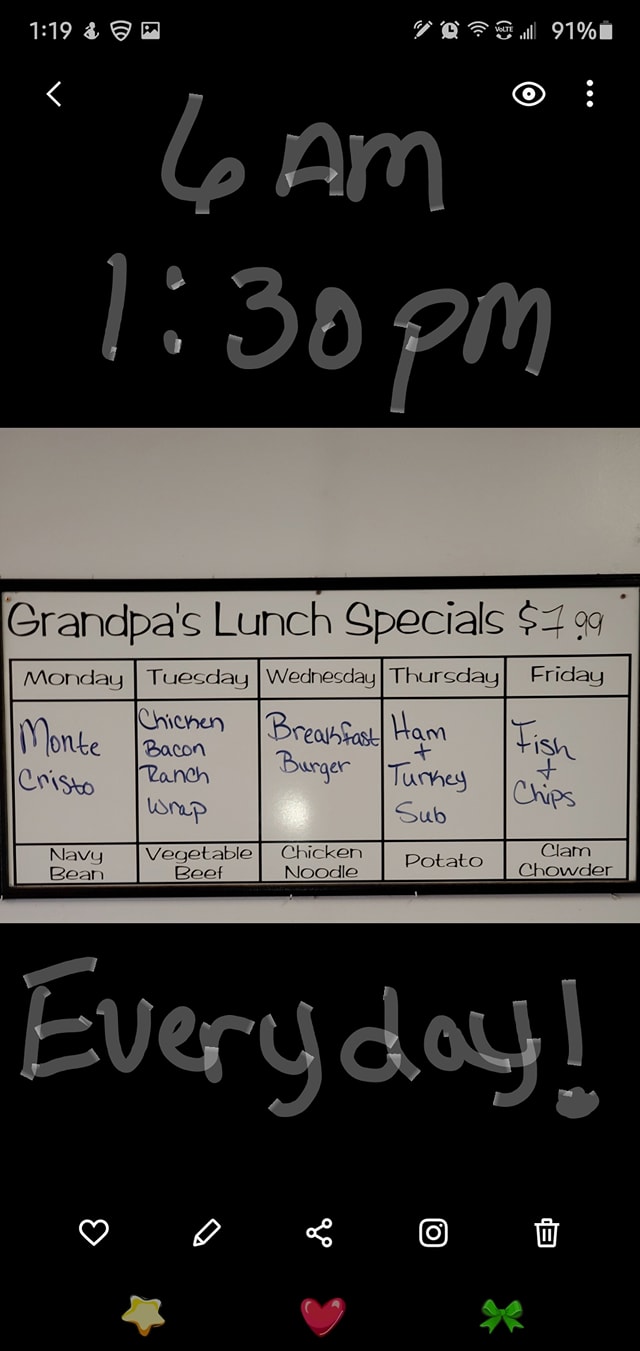 1:19 VoLTE 91%
6 AM
1:30 pm
Grandpa's Lunch Specials $7.99
Monday Tuesday Wednesday Thursday Friday
Monte
Cristo
Chicken
Bacon
Ranch
Wrap
Breakfast
Burger
Ham
+
Turkey
Sub
Fish
+
Chips
Navy
Bean
Vegetable
Beef
Chicken
Noodle
Potato
Clam
Chowder
Everyday!